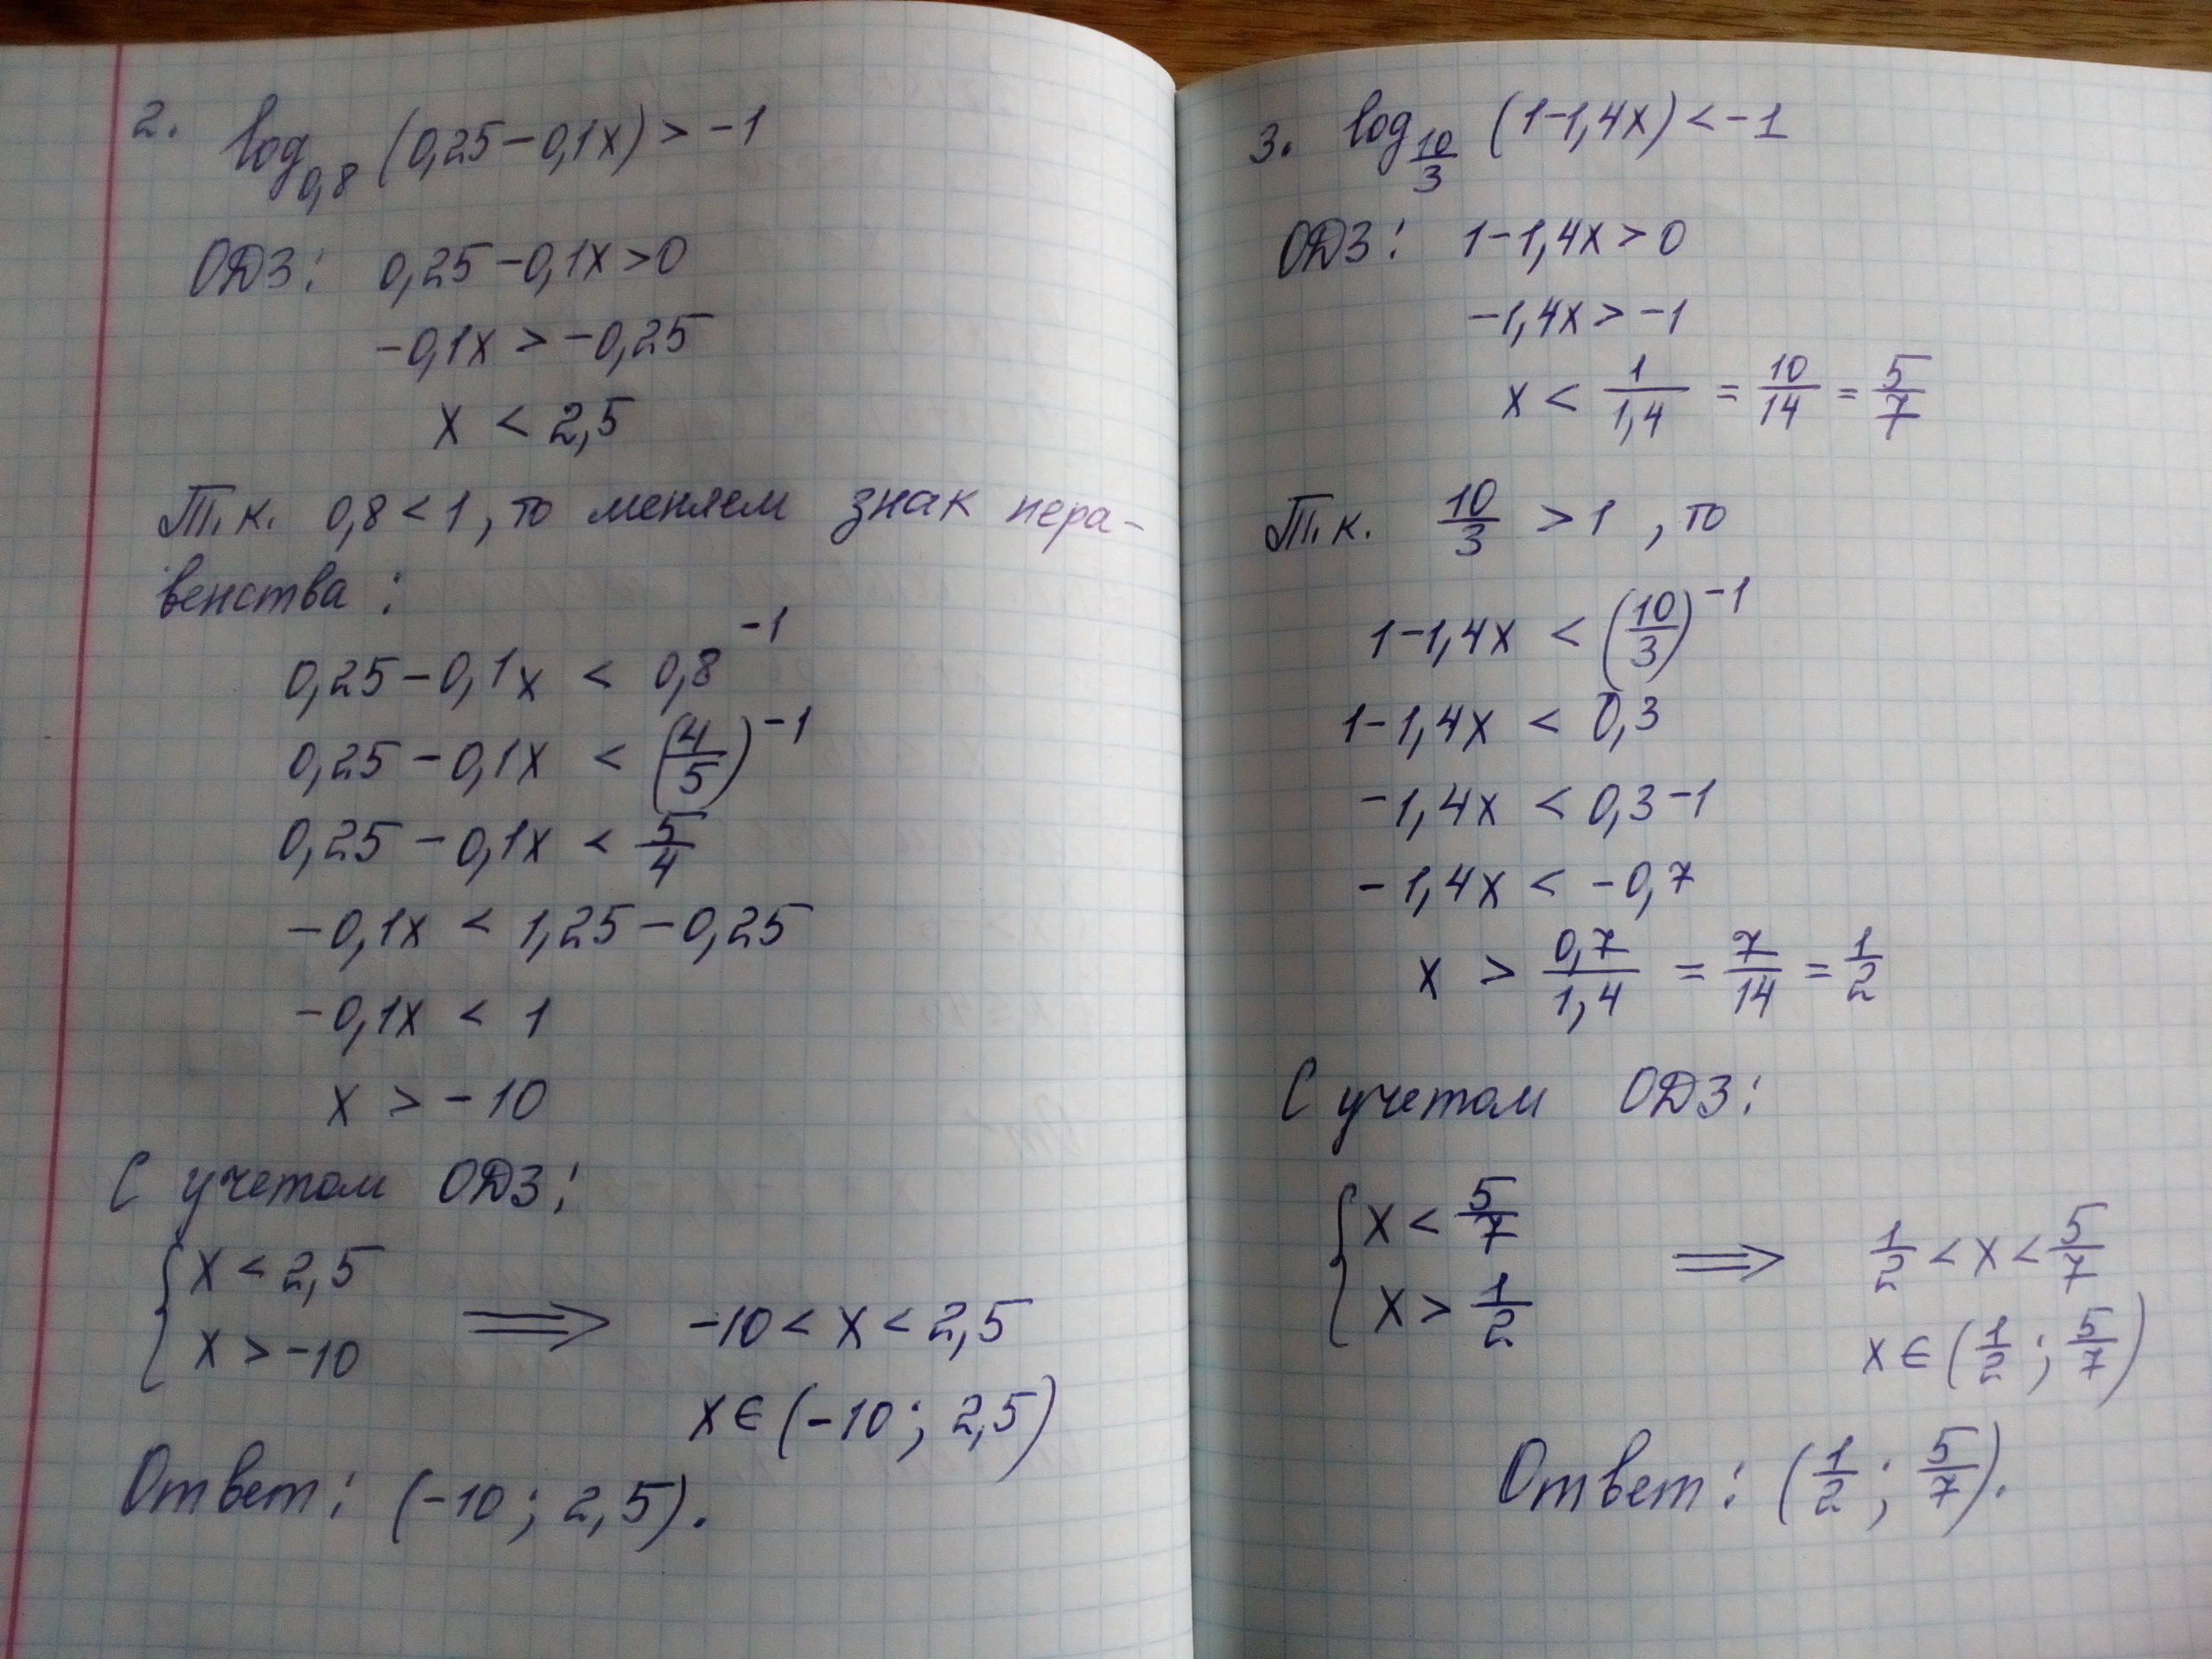 2. log_{0,8} (0,25-0,1x) > -1
ОДЗ: 0,25-0,1x>0
-0,1x > -0,25
x < 2,5
Т.к. 0,8<1, то меняем знак нера-
венства:
0,25-0,1x < 0,8^{-1}
0,25-0,1x < (4/5)^{-1}
0,25-0,1x < 5/4
-0,1x < 1,25-0,25
-0,1x < 1
x > -10
С учетом ОДЗ:
{x < 2,5
x > -10 ⟹ -10 < x < 2,5
x ∈ (-10; 2,5)
Ответ: (-10; 2,5).
3. log_{10/3} (1-1,4x) < -1
ОДЗ: 1-1,4x > 0
-1,4x > -1
x < 1/1,4 = 10/14 = 5/7
Т.к. 10/3 > 1, то
1-1,4x < (10/3)^{-1}
1-1,4x < 0,3
-1,4x < 0,3-1
-1,4x < -0,7
x > 0,7/1,4 = 7/14 = 1/2
С учетом ОДЗ:
{x < 5/7
x > 1/2 ⟹ 1/2 < x < 5/7
x ∈ (1/2; 5/7)
Ответ: (1/2; 5/7).